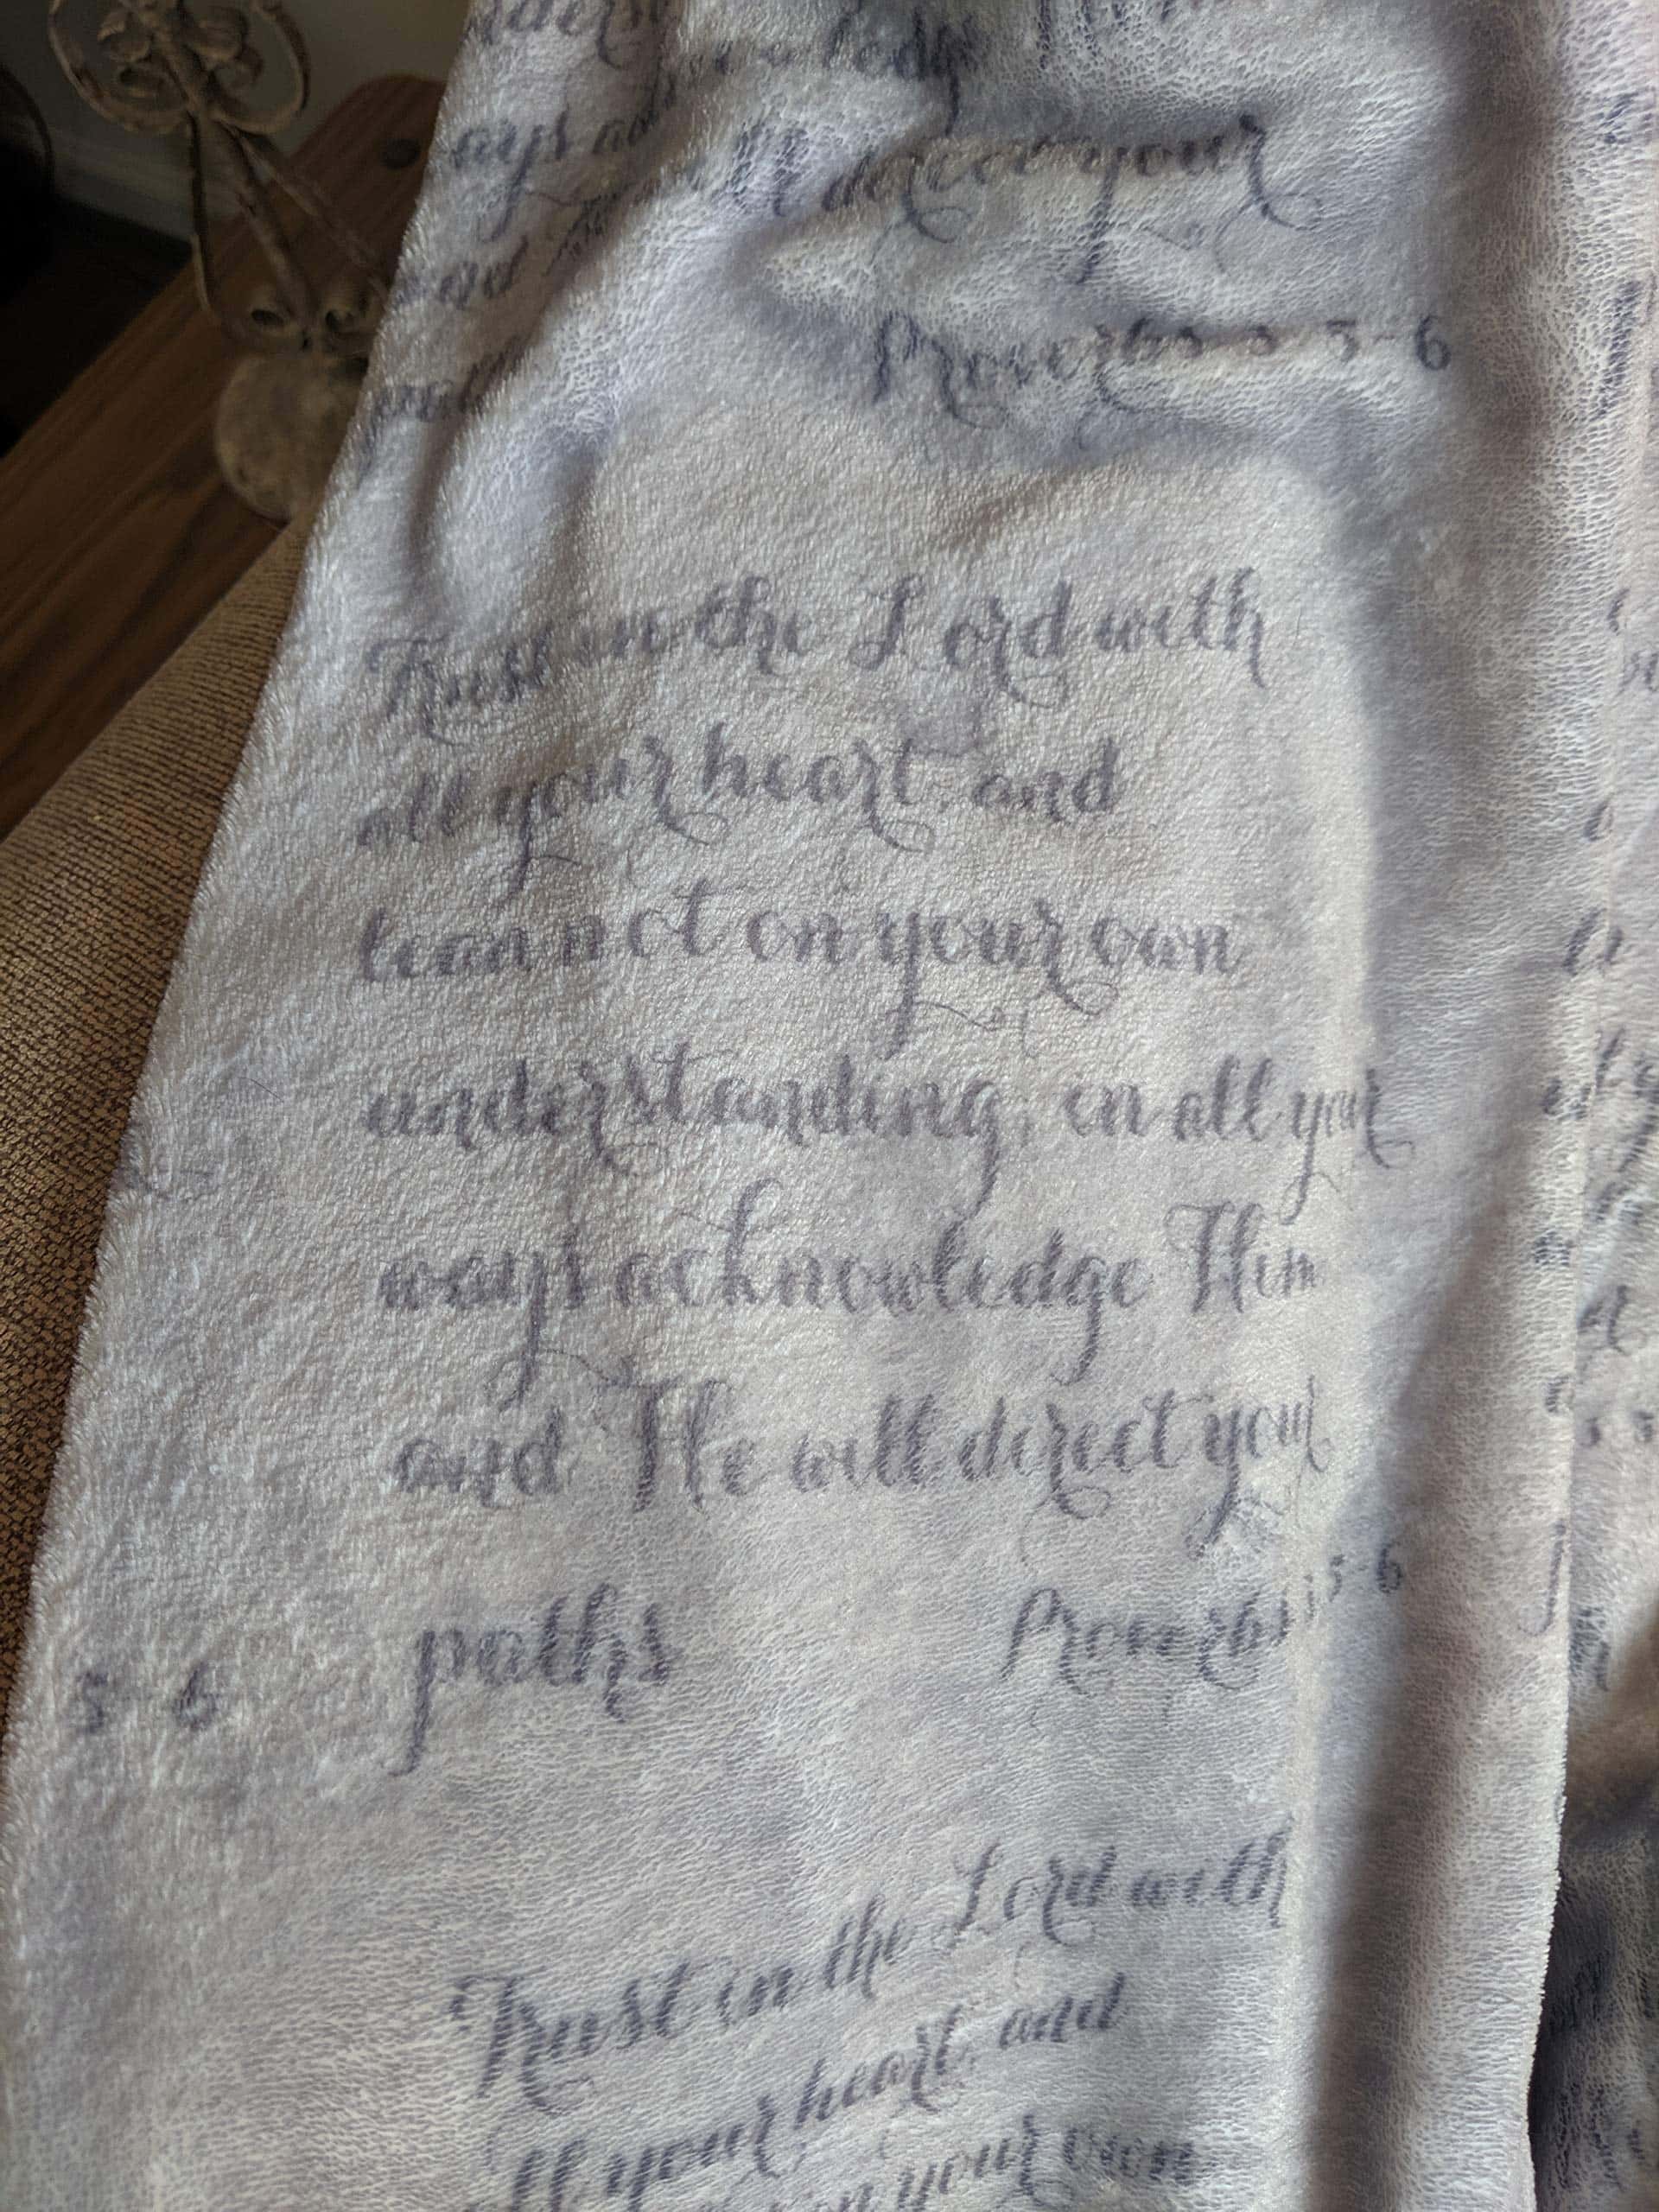 acknowledge Him
direct your
Proverbs 3 5-6
Trust in the Lord with
all your heart, and
lean not on your own
understanding, in all your
ways acknowledge Him
and He will direct your
paths
Proverbs 5-6
5-6
Trust in the Lord with
all your heart, and
on your own